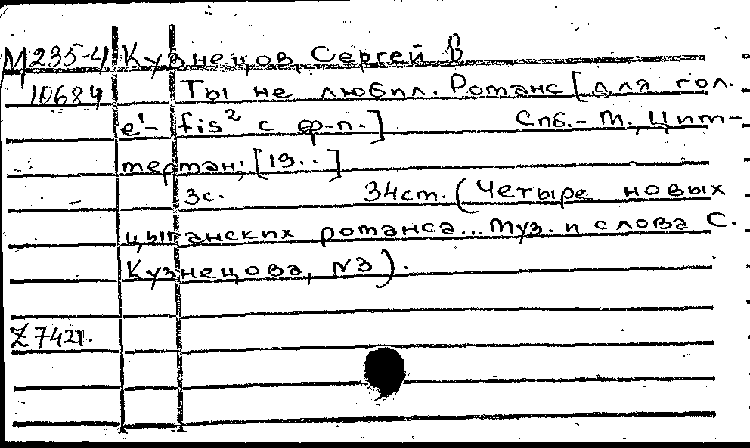 М235-4 Кузнецов, Сергей В
10684 Ты не любил. Романс [для гол.
e¹- fis² с ф-п.] Спб.-М., Цим-
мерман; [19..]
3с. 34см. (Четыре новых
цыганских романса... Муз. и слова С.
Кузнецова, №3).
Z 7421.